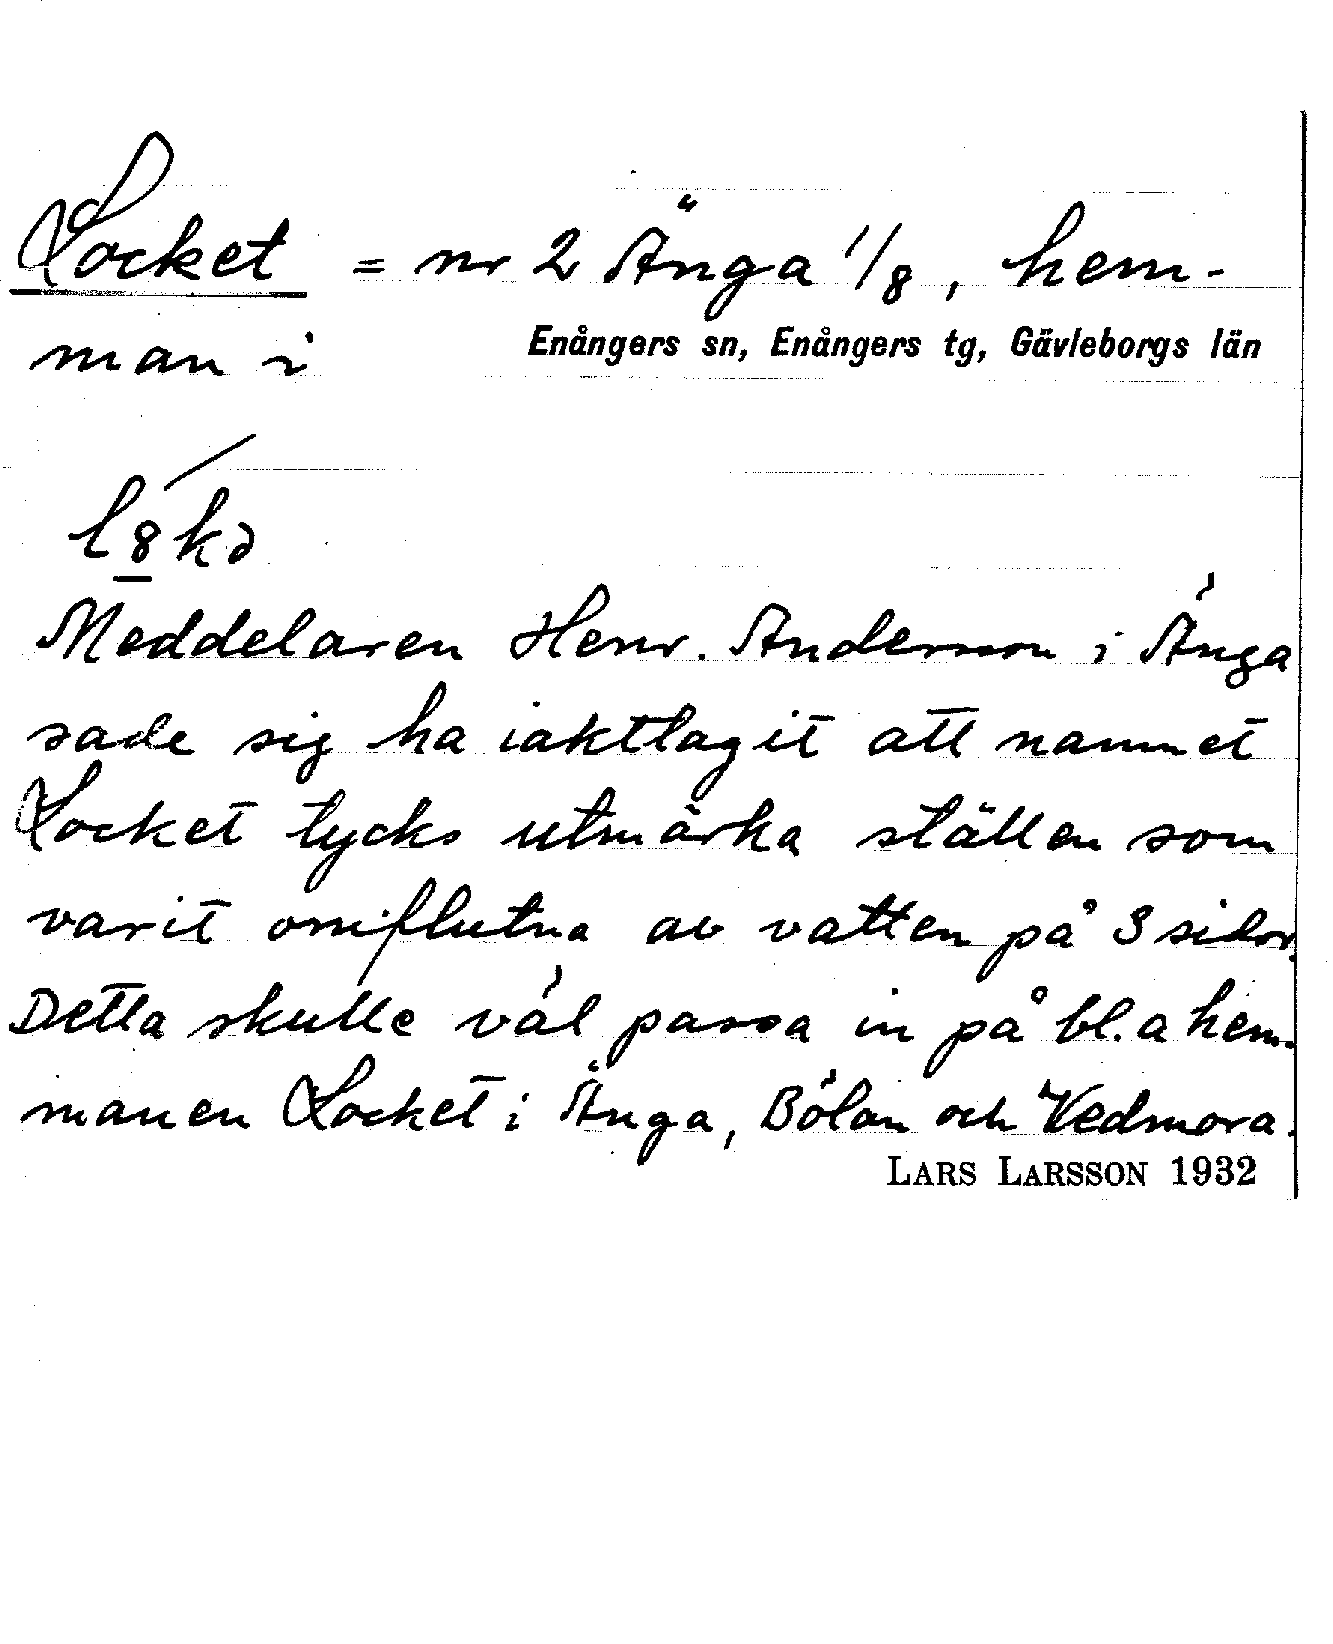 Locket = nr 2 Änga 1/8, hem-
man i Enångers sn, Enångers tg, Gävleborgs län
l8kə
Meddelaren Henr. Andersson i Änga
sade sig ha iakttagit att namnet
Locket tycks utmärka ställen som
varit omflutna av vatten på 3 sidor.
Detta skulle väl passa in på bl. a hem-
manen Locket i Änga, Bölan och Vedmora.
LARS LARSSON 1932